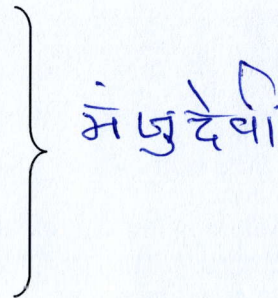 मंजु देवी